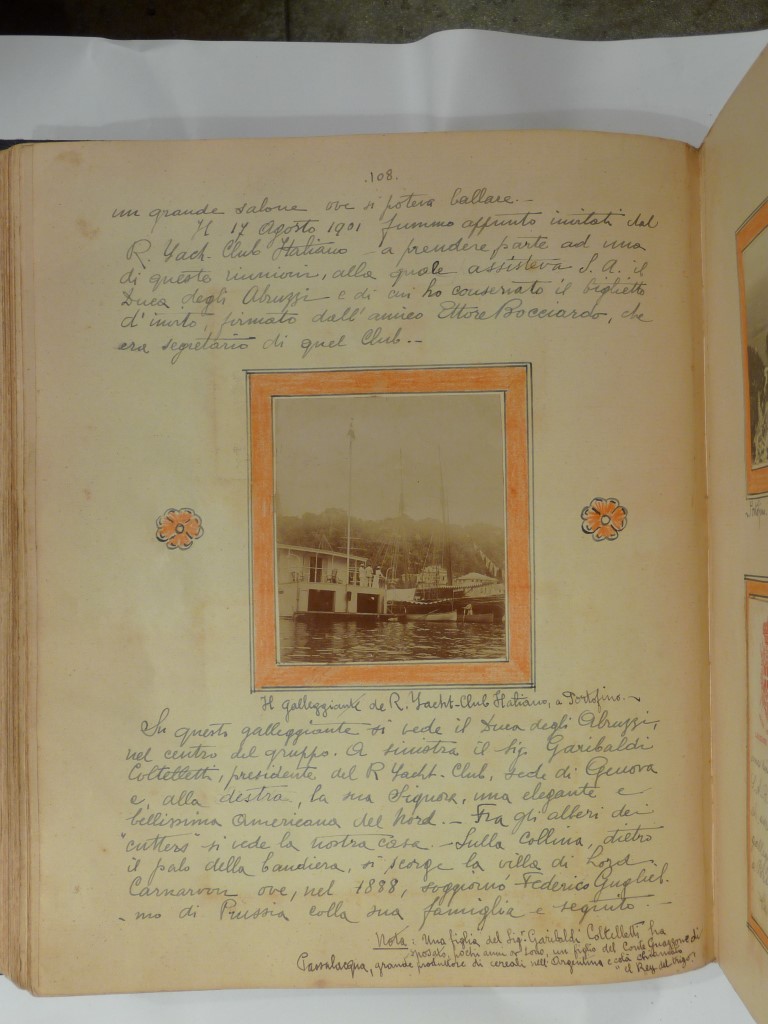 .108.
un grande salone ove si poteva ballare.-
Il 17 Agosto 1901 fummo appunto invitati dal
R. Yach-Club Italiano - a prendere parte ad una
di queste riunioni, alla quale assisteva S. A. il
Duca degli Abruzzi e di cui ho conservato il biglietto
d'invito, firmato dall'amico Ettore Bocciardo, che
era segretario di quel Club.--
Il galleggiante de R. Yacht-Club Italiano, a Portofino.-
Su questo galleggiante si vede il Duca degli Abruzzi,
nel centro del gruppo. A sinistra il Sig. Garibaldi
Coltelletti, presidente del R Yacht-Club, Sede di Genova
e, alla destra, la sua Signora, una elegante e
bellissima Americana del Nord.- Fra gli alberi dei
"cutters" si vede la nostra casa.- Sulla collina, dietro
il palo della bandiera, si scorge la villa di Lord
Carnarvon ove, nel 1888, soggiornò Federico Gugliel-
-mo di Prussia colla sua famiglia e seguito.-
Nota: Una figlia del Sigr. Garibaldi Coltelletti ha
sposato, pochi anni or sono, un figlio del Conte Guazzone di
Passalacqua, grande produttore di cereali nell'Argentina e colà chiamato
"il Rey del trigo".